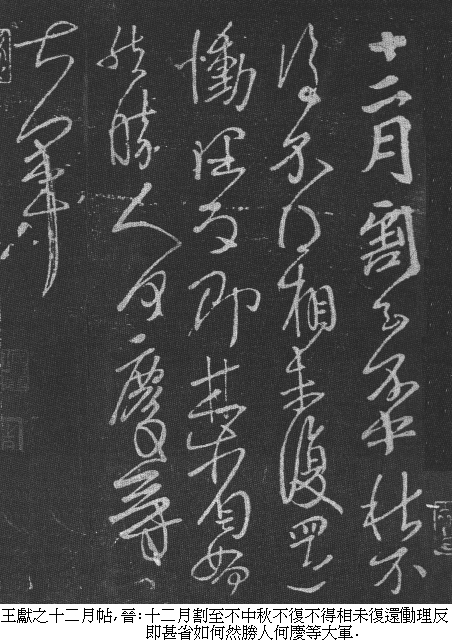 十二月割至不中秋不
復不得相未復還
慟理反即甚省如何
然勝人何慶等
大軍
王獻之十二月帖.晉:十二月割至不中秋不復不得相未復還慟理反
即甚省如何然勝人何慶等大軍.